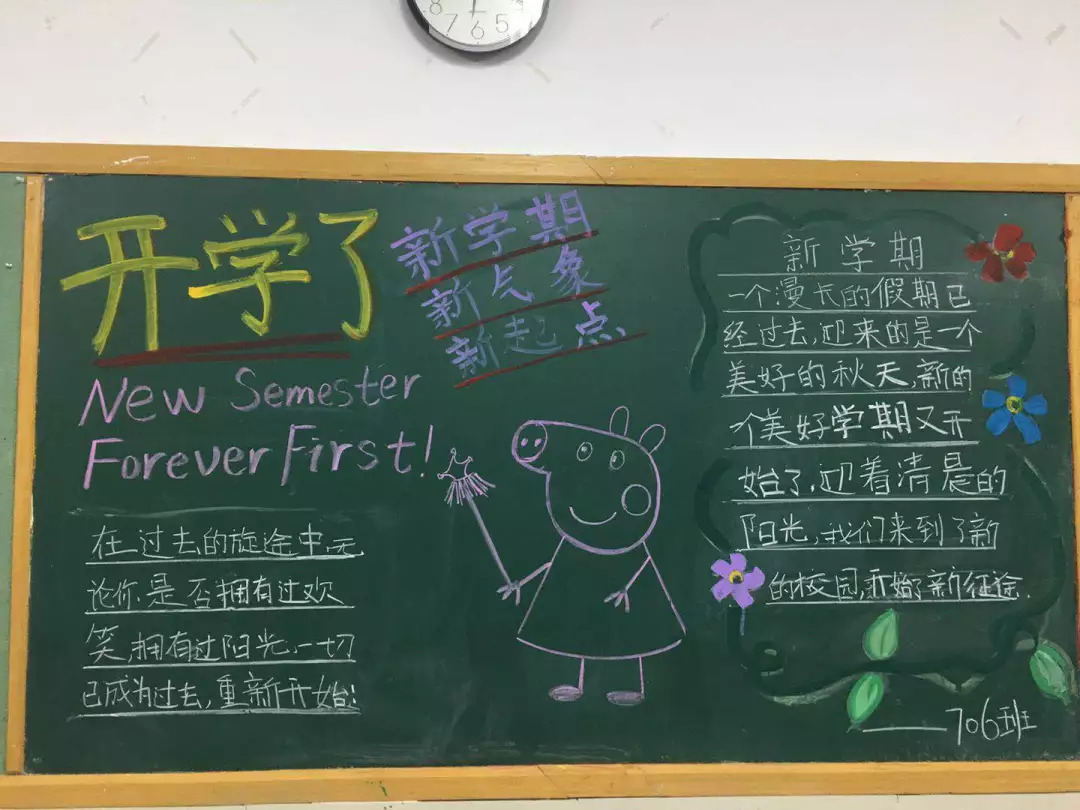 8 7 6 5
开学了
新学期
新气象
新起点
New Semester
Forever First!
在过去的旅途中无
论你是否拥有过欢
笑,拥有过阳光,一切
已成为过去,重新开始!
新学期
一个漫长的假期已
经过去,迎来的是一个
美好的秋天,新的
个美好学期又开
始了,迎着清晨的
阳光,我们来到了新
的校园,开始了新征途.
——706班